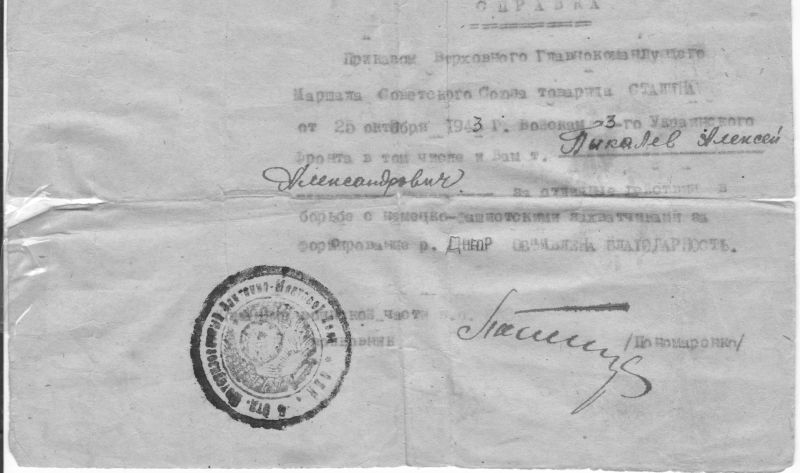 СПРАВКА
Приказом Верховного Главнокомандующего
Маршала Советского Союза товарища СТАЛИНА
от 25 октября 1943 г. войскам 3-го Украинского
фронта в том числе и Вам т. Пыкалев Алексей
Александрович за отличные действия в
борьбе с немецко-фашистскими захватчиками за
форсирование р. ДНЕПР ОБЪЯВЛЕНА БЛАГОДАРНОСТЬ.
части п.п.
/Пономаренко/